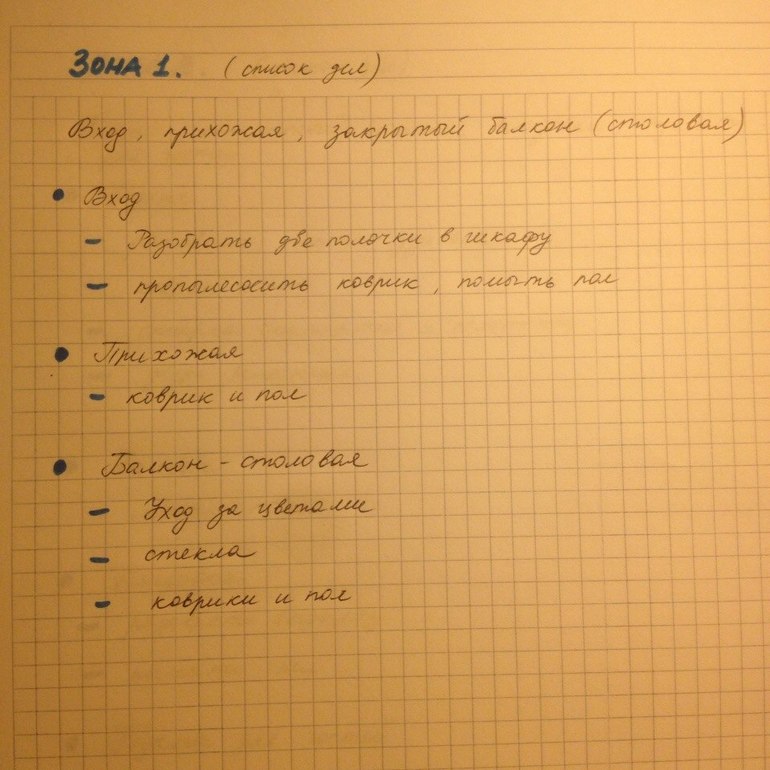 ЗОНА 1. (список дел)
Вход, прихожая, закрытый балкон (столовая)
• Вход
- Разобрать две полочки в шкафу
- пропылесосить коврик, помыть пол
• Прихожая
- коврик и пол
• Балкон - столовая
- Уход за цветами
- стекла
- коврики и пол